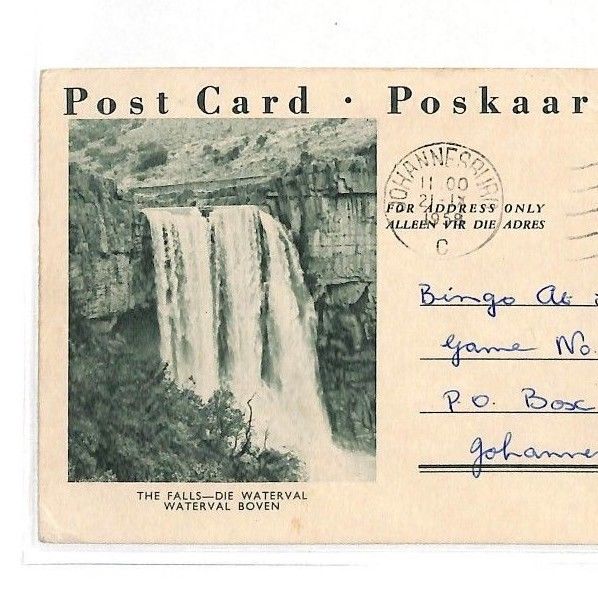 Post Card · Poskaar
JOHANNESBURG
11 00
21-IX
1958
C
FOR ADDRESS ONLY
ALLEEN VIR DIE ADRES
Bingo At
Game No.
P.O. Box
Johanne
THE FALLS—DIE WATERVAL
WATERVAL BOVEN